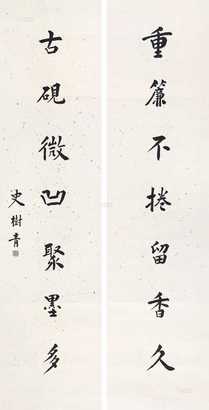 重簾不捲留香久
古硯微凹聚墨多
史樹青